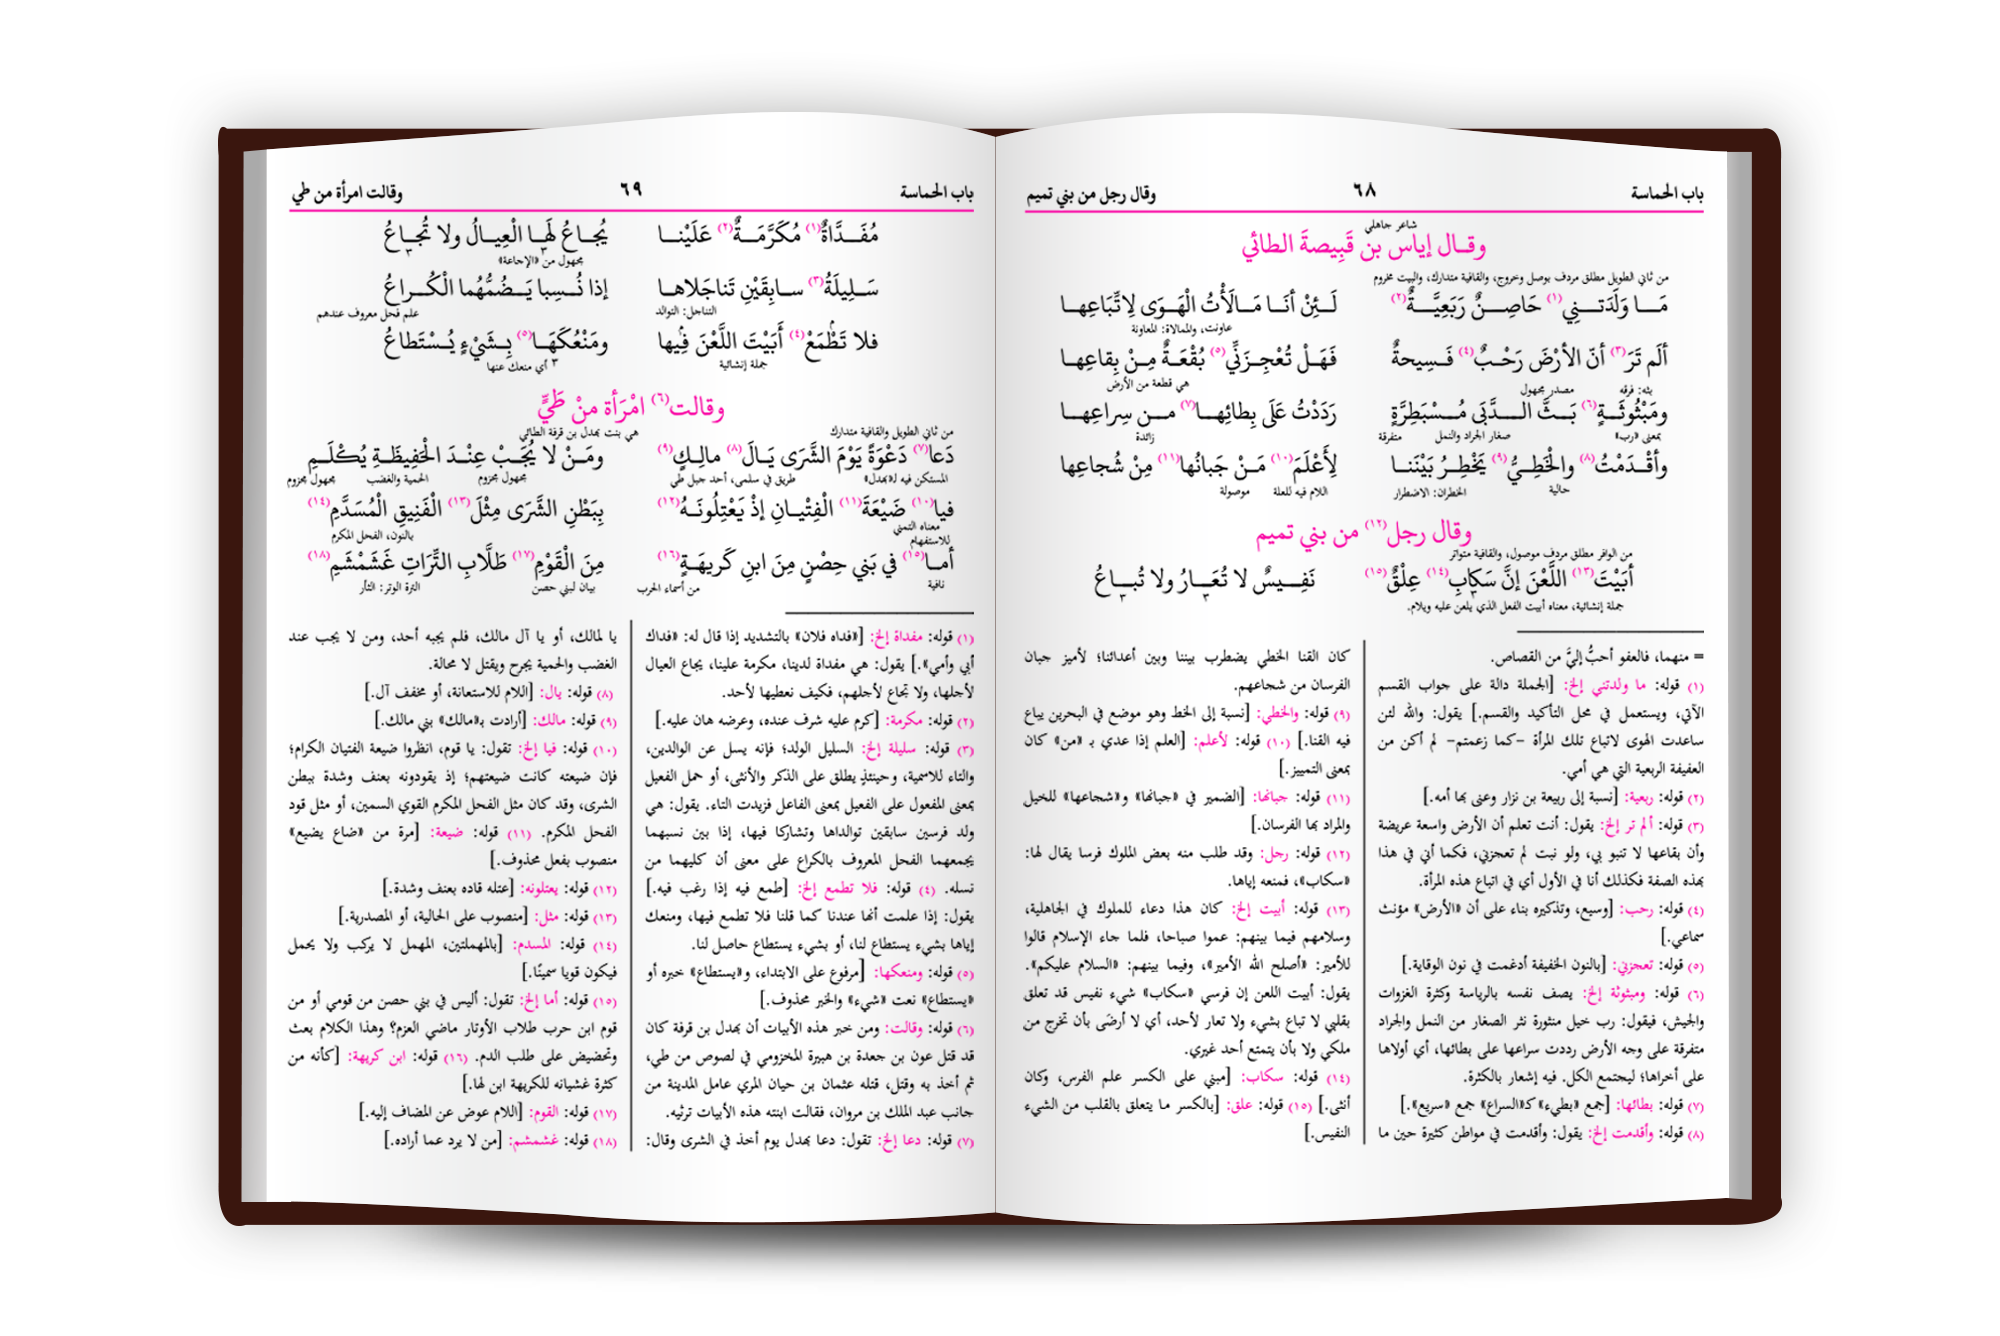 باب الحماسة ٦٨ وقال رجل من بني تميم
شاعر جاهلي
وقـال إياس بن قَبِيصةَ الطائي
من ثاني الطويل مطلق مردف بوصل وخروج، والقافية متدارك، والبيت مخروم
مَــا وَلَدَتــنِي(١) حَاصِــنٌ رَبَعِيَّــةٌ(٢) لَــئِنْ أنَــا مَــالَأْتُ الْهَـوَى لِاتِّبَاعِهـا
عاونت، والممالاة: المعاونة
ألَم تَرَ(٣) أنّ الأرْضَ رَحْـبٌ(٤) فَـسِيحةٌ فَهَـلْ تُعْجِـزَنِّي(٥) بُقْعَـةٌ مِـنْ بِقاعِهـا
بثه: فرقه مصدر مجهول هي قطعة من الأرض
ومَبْثُوثَــةٍ(٦) بَــثَّ الــدَّبَى مُــسْبَطِرَّةٍ رَدَدْتُ عَلَى بِطائِهـا(٧) مــن سِراعِهـا
بمعنى «رب» صغار الجراد والنمل متفرقة زائدة
وأقْـدَمْتُ(٨) والْخَطِـيُّ(٩) يَخْطِـرُ بَيْنَنـا لِأَعْلَمَ(١٠) مَـنْ جَبانُها(١١) مِنْ شُجاعِها
حالية الخطران: الاضطرار اللام فيه للعلة موصولة
وقال رجل(١٢) من بني تميم
من الوافر مطلق مردف موصول، والقافية متواتر
أبَيْتَ(١٣) اللَّعْنَ إنَّ سَكابِ(١٤) عِلْقٌ(١٥) نَفِــيسٌ لا تُعَــارُ ولا تُبــاعُ
جملة إنشائية، معناه أبيت الفعل الذي يلعن عليه ويلام.
= منهما، فالعفو أحبُّ إليَّ من القصاص.
(١) قوله: ما ولدتني إلخ: [الجملة دالة على جواب القسم
الآتي، ويستعمل في محل التأكيد والقسم.] يقول: والله لئن
ساعدت الهوى لاتباع تلك المرأة –كما زعمتم– لم أكن من
العفيفة الربعية التي هي أمي.
(٢) قوله: ربعية: [نسبة إلى ربيعة بن نزار وعنى بها أمه.]
(٣) قوله: ألم تر إلخ: يقول: أنت تعلم أن الأرض واسعة عريضة
وأن بقاعها لا تنبو بي، ولو نبت لم تعجزني، فكما أني في هذا
بهذه الصفة فكذلك أنا في الأول أي في اتباع هذه المرأة.
(٤) قوله: رحب: [وسيع، وتذكيره بناء على أن «الأرض» مؤنث
سماعي.]
(٥) قوله: تعجزني: [بالنون الخفيفة أدغمت في نون الوقاية.]
(٦) قوله: ومبثوثة إلخ: يصف نفسه بالرياسة وكثرة الغزوات
والجيش، فيقول: رب خيل منثورة نثر الصغار من النمل والجراد
متفرقة على وجه الأرض رددت سراعها على بطائها، أي أولاها
على أخراها؛ ليجتمع الكل. فيه إشعار بالكثرة.
(٧) قوله: بطائها: [جمع «بطيء» كـ«السراع» جمع «سريع».]
(٨) قوله: وأقدمت إلخ: يقول: وأقدمت في مواطن كثيرة حين ما
كان القنا الخطي يضطرب بيننا وبين أعدائنا؛ لأميز جبان
الفرسان من شجاعهم.
(٩) قوله: والخطي: [نسبة إلى الخط وهو موضع في البحرين يباع
فيه القنا.] (١٠) قوله: لأعلم: [العلم إذا عدي بـ «من» كان
بمعنى التمييز.]
(١١) قوله: جبانها: [الضمير في «جبانها» و«شجاعها» للخيل
والمراد بها الفرسان.]
(١٢) قوله: رجل: وقد طلب منه بعض الملوك فرسا يقال لها:
«سكاب»، فمنعه إياها.
(١٣) قوله: أبيت إلخ: كان هذا دعاء للملوك في الجاهلية،
وسلامهم فيما بينهم: عموا صباحا، فلما جاء الإسلام قالوا
للأمير: «أصلح الله الأمير»، وفيما بينهم: «السلام عليكم».
يقول: أبيت اللعن إن فرسي «سكاب» شيء نفيس قد تعلق
بقلبي لا تباع بشيء ولا تعار لأحد، أي لا أرضَى بأن تخرج من
ملكي ولا بأن يتمتع أحد غيري.
(١٤) قوله: سكاب: [مبني على الكسر علم الفرس، وكان
أنثى.] (١٥) قوله: علق: [بالكسر ما يتعلق بالقلب من الشيء
النفيس.]
باب الحماسة ٦٩ وقالت امرأة من طي
مُفَــدَّاةٌ(١) مُكَرَّمَــةٌ(٢) عَلَيْنــا يُجـاعُ لَهـا الْعِيـالُ ولا تُجـاعُ
مجهول من «الإجاعة»
سَــلِيلَةُ(٣) ســابِقَيْنِ تَناجَلاهــا إذا نُــسِبا يَــضُمُّهُما الْكُــراعُ
التناجل: التوالد علم فحل معروف عندهم
فلا تَطْمَعْ(٤) أَبَيْتَ اللَّعْنَ فِيها ومَنْعُكَهَــا(٥) بِــشَيْءٍ يُــسْتَطاعُ
جملة إنشائية ٣ أي منعك عنها
وقالت(٦) امْرَأة منْ طَيٍّ
هي بنت بهدل بن قرفة الطائي
من ثاني الطويل والقافية متدارك
دَعا(٧) دَعْوَةً يَوْمَ الشَّرَى يَـالَ(٨) مالِـكٍ(٩) ومَــنْ لا يُجَبْ عِنْـدَ الْحَفِيظَـةِ يُكْلَـمِ
المستكن فيه لـ«بهدل» طريق في سلمى، أحد جبل طي مجهول مجزوم الحمية والغضب مجهول مجزوم
فيا(١٠) ضَيْعَةَ(١١) الْفِتْيـانِ إذْ يَعْتِلُونَـهُ(١٢) بِبَطْنِ الشَّرَى مِثْلَ(١٣) الْفَنِيقِ الْمُسَدَّمِ(١٤)
معناه التمني بالنون، الفحل المكرم
للاستفهام
أمـا(١٥) في بَني حِصْنٍ مِنَ ابنِ كَريهَـةٍ(١٦) مِنَ الْقَوْمِ(١٧) طَلَّابِ التِّرَاتِ غَشَمْشَمِ(١٨)
نافية من أسماء الحرب بيان لبني حصن الترة الوتر: الثأر
(١) قوله: مفداة إلخ: [«فداه فلان» بالتشديد إذا قال له: «فداك
أبي وأمي».] يقول: هي مفداة لدينا، مكرمة علينا، يجاع العيال
لأجلها، ولا تجاع لأجلهم، فكيف نعطيها لأحد.
(٢) قوله: مكرمة: [كرم عليه شرف عنده، وعرضه هان عليه.]
(٣) قوله: سليلة إلخ: السليل الولد؛ فإنه يسل عن الوالدين،
والتاء للاسمية، وحينئذٍ يطلق على الذكر والأنثى، أو حمل الفعيل
بمعنى المفعول على الفعيل بمعنى الفاعل فزيدت التاء. يقول: هي
ولد فرسين سابقين توالداها وتشاركا فيها، إذا بين نسبهما
يجمعهما الفحل المعروف بالكراع على معنى أن كليهما من
نسله. (٤) قوله: فلا تطمع إلخ: [طمع فيه إذا رغب فيه.]
يقول: إذا علمت أنها عندنا كما قلنا فلا تطمع فيها، ومنعك
إياها بشيء يستطاع لنا، أو بشيء يستطاع حاصل لنا.
(٥) قوله: ومنعكها: [مرفوع على الابتداء، و«يستطاع» خبره أو
«يستطاع» نعت «شيء» والخبر محذوف.]
(٦) قوله: وقالت: ومن خبر هذه الأبيات أن بهدل بن قرفة كان
قد قتل عون بن جعدة بن هبيرة المخزومي في لصوص من طي،
ثم أخذ به وقتل، قتله عثمان بن حيان المري عامل المدينة من
جانب عبد الملك بن مروان، فقالت ابنته هذه الأبيات ترثيه.
(٧) قوله: دعا إلخ: تقول: دعا بهدل يوم أخذ في الشرى وقال:
يا لمالك، أو يا آل مالك، فلم يجبه أحد، ومن لا يجب عند
الغضب والحمية يجرح ويقتل لا محالة.
(٨) قوله: يال: [اللام للاستعانة، أو مخفف آل.]
(٩) قوله: مالك: [أرادت بـ«مالك» بني مالك.]
(١٠) قوله: فيا إلخ: تقول: يا قوم، انظروا ضيعة الفتيان الكرام؛
فإن ضيعته كانت ضيعتهم؛ إذ يقودونه بعنف وشدة ببطن
الشرى، وقد كان مثل الفحل المكرم القوي السمين، أو مثل قود
الفحل المكرم. (١١) قوله: ضيعة: [مرة من «ضاع يضيع»
منصوب بفعل محذوف.]
(١٢) قوله: يعتلونه: [عتله قاده بعنف وشدة.]
(١٣) قوله: مثل: [منصوب على الحالية، أو المصدرية.]
(١٤) قوله: المسدم: [بالمهملتين، المهمل لا يركب ولا يحمل
فيكون قويا سمينًا.]
(١٥) قوله: أما إلخ: تقول: أليس في بني حصن من قومي أو من
قوم ابن حرب طلاب الأوتار ماضي العزم؟ وهذا الكلام بعث
وتحضيض على طلب الدم. (١٦) قوله: ابن كريهة: [كأنه من
كثرة غشيانه للكريهة ابن لها.]
(١٧) قوله: القوم: [اللام عوض عن المضاف إليه.]
(١٨) قوله: غشمشم: [من لا يرد عما أراده.]